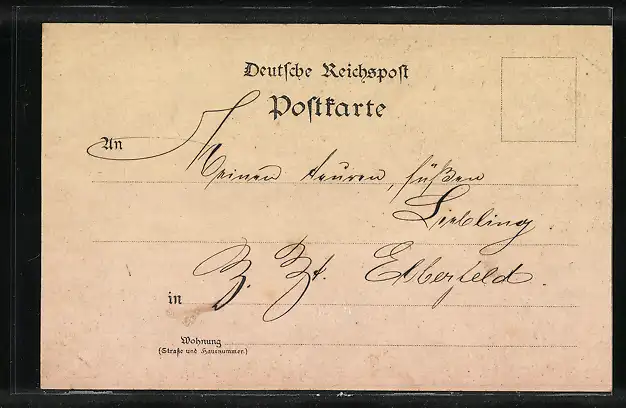 Deutsche Reichspost
Postkarte
An Meinen teuren, süßen
Liebling
in Z. Zt. Elberfeld.
Wohnung
(Straße und Hausnummer.)